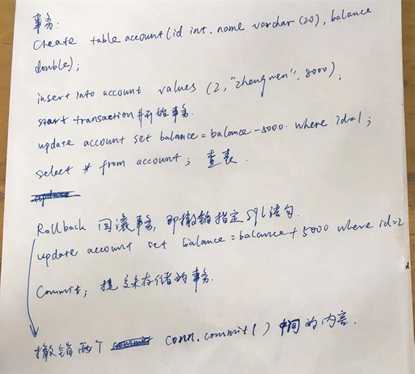 事务:
Create table account(id int, name varchar(20), balance
double);
insert into account values (2,"zhangwen",8000);
start transaction 开始事务.
update account set balance=balance-5000 where id=1;
select * from account; 查表.
Rollback 回滚事务, 即撤销指定sql语句.
update account set balance=balance+5000 where id=2
Commit; 提交未存储的事务.
撤销两个 conn.commit() 中间的内容.